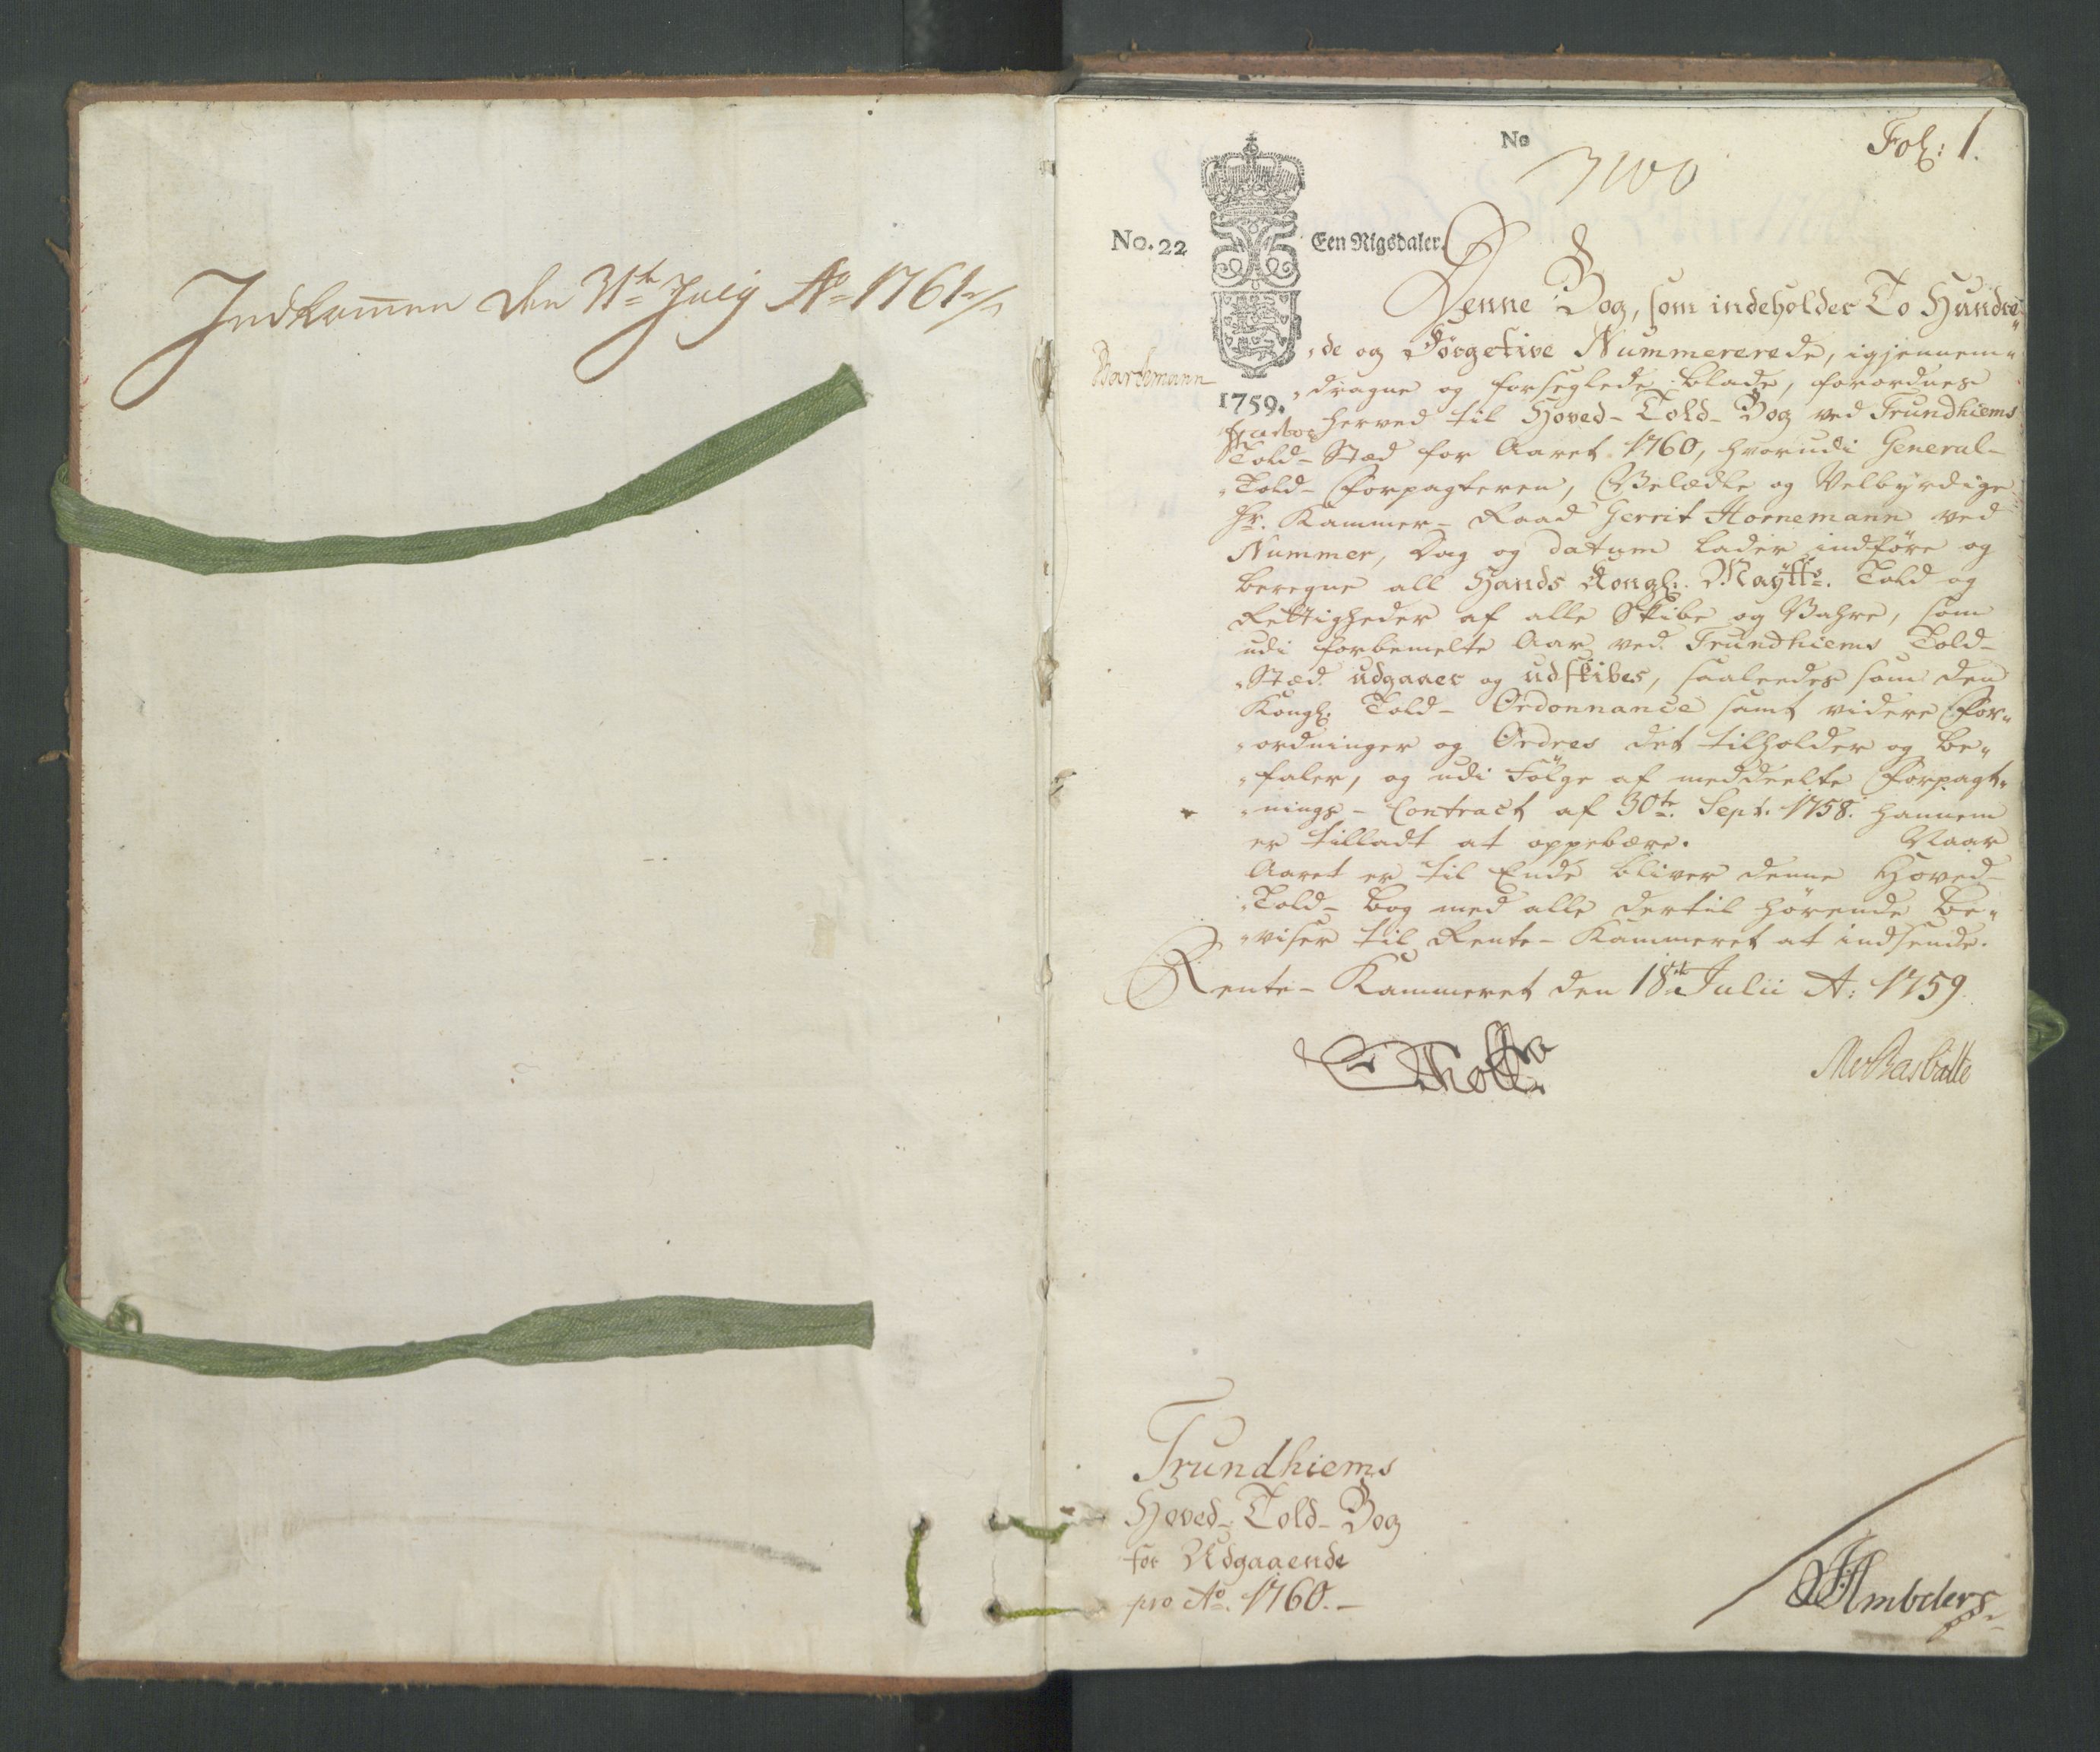 Indkom̅en den 31te Julij Ao 1761
No
Fol: 1.
No. 22
Een Rigsdaler.
1759.
Denne Bog, som indeholder To Hundre-
de og Fyrgetive Nummererede, igjennem-
dragne og forseglede blade, forordnes
herved til Hoved-Told-Bog ved Trundhiems
Told-Stæd for Aaret 1760, hvorudi General-
Told-Forpagteren, Velædle og Velbyrdige
Hr. Kammer-Raad Gerrit Hornemann ved
Nummer, Dag og datum lader indføre og
beregne all Hands Kongl: Maÿtts. Told og
Rettigheder af alle Skibe og Vahre, som
udi forbemelte Aar ved Trundhiems Told-
Stæd udgaaer og udskibes, saaleedes som den
Kongl: Told-Ordonnance samt videre For-
ordninger og Ordres det tilholder og be-
faler, og udi Følge af meddeelte Forpagt-
nings-Contract af 30te Sept. 1758. hannem
er tilladt at oppebære. Naar
Aaret er til Ende bliver denne Hoved-
Told-bog med alle dertil hørende be-
viser til Rente-Kammeret at indsende.
Rente-Kammeret den 18de Julii A: 1759
Trundhiems
Hoved-Told-Bog
for Udgaaende
pro Ao. 1760.-